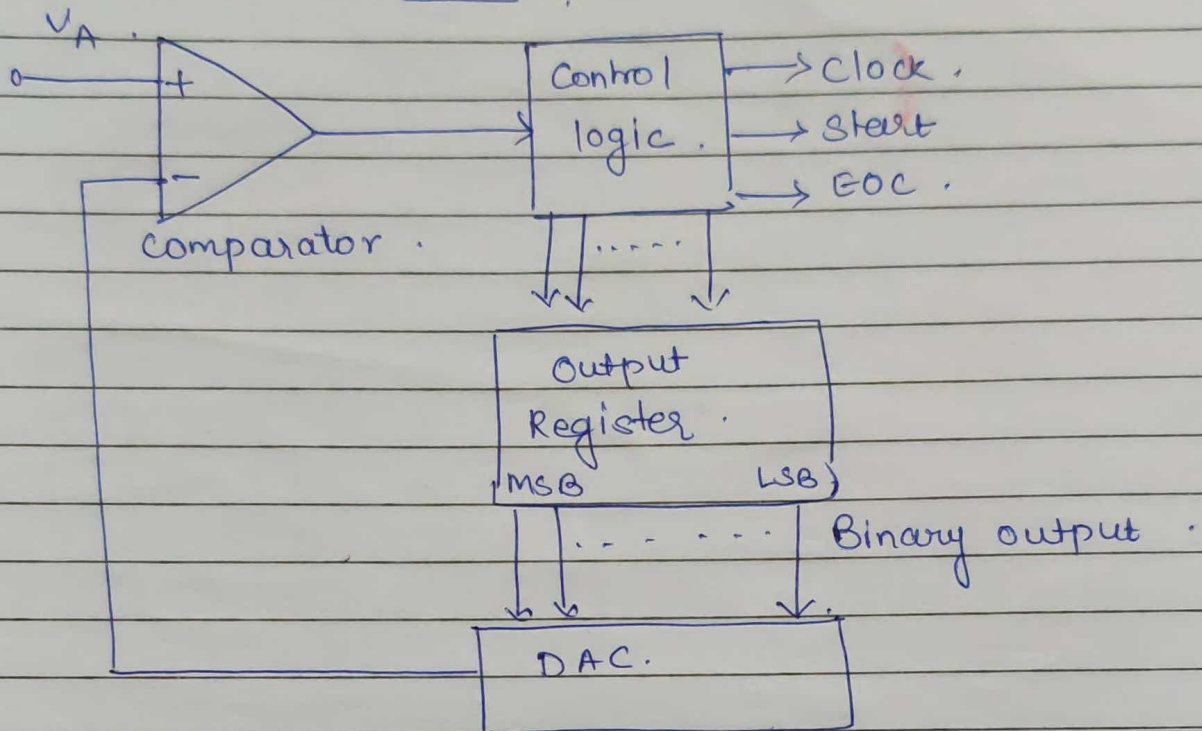 VA .
+
-
Comparator .
Control
logic .
Clock .
Start
EOC .
.....
Output
Register .
MSB LSB
. . - - - . . Binary output .
DAC.